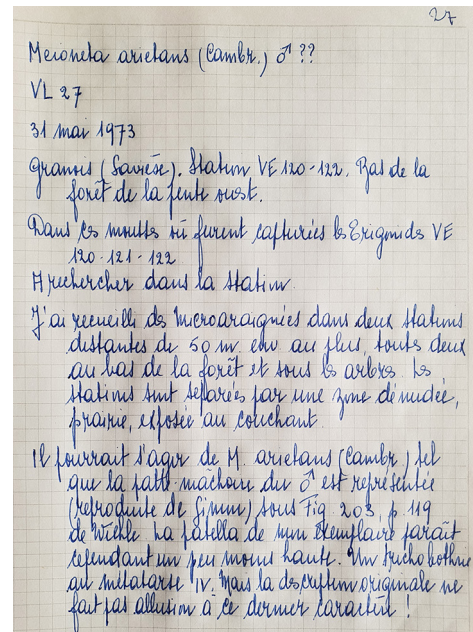 27
Meioneta arietans (Cambr.) ♂ ??
VL 27
31 mai 1973
Granois (Savièse). Station VE 120-122. Bas de la
forêt de la pente ouest.
Dans les mousses où furent capturées les Erigonides VE
120-121-122
A rechercher dans la station.
J'ai recueilli des microaraignées dans deux stations
distantes de 50 m. env. au plus, toutes deux
au bas de la forêt et sous les arbres. Les
stations sont séparées par une zone dénudée,
prairie, exposée au couchant.
Il pourrait s'agir de M. arietans (Cambr.) tel
que la patte-mâchoire du ♂ est représentée
(reproduite de Simon) sous Fig. 203, p. 119
de Wiehle. La patella de mon exemplaire paraît
cependant un peu moins haute. Un trichobothrie
au métatarse IV. Mais la description originale ne
fait pas allusion à ce dernier caractère !